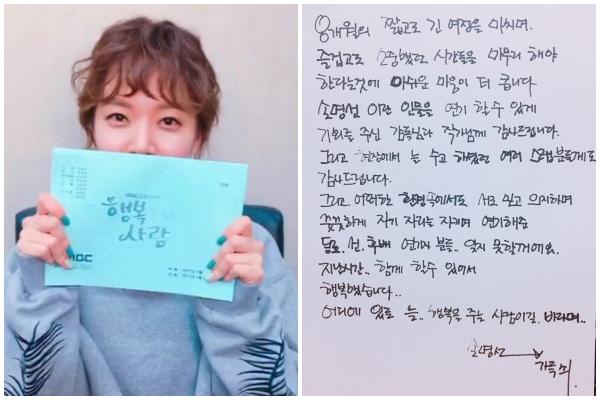 행복
사람
MBC
8개월의 짧고도 긴 여정을 마치며.
즐겁고도 소중했던 시간들을 마무리 해야
한다는것에 아쉬운 마음이 더 큽니다
소명선 이란 인물을 연기 할수 있게
기회를 주신 감독님과 작가님께 감사드립니다.
그리고 현장에서 늘 수고 해줬던 여러 스탭분들께도
감사드립니다.
그리고 어떠한 환경속에서도 서로 믿고 의지하며
꿋꿋하게 자기 자리를 지키며 연기해준
동료. 선. 후배 연기자 분들.. 잊지 못할꺼에요.
지난시간.. 함께 할수 있어서
행복했습니다..
어디에 있든 늘.. 행복을 주는 사람이길. 바라며..
소명선